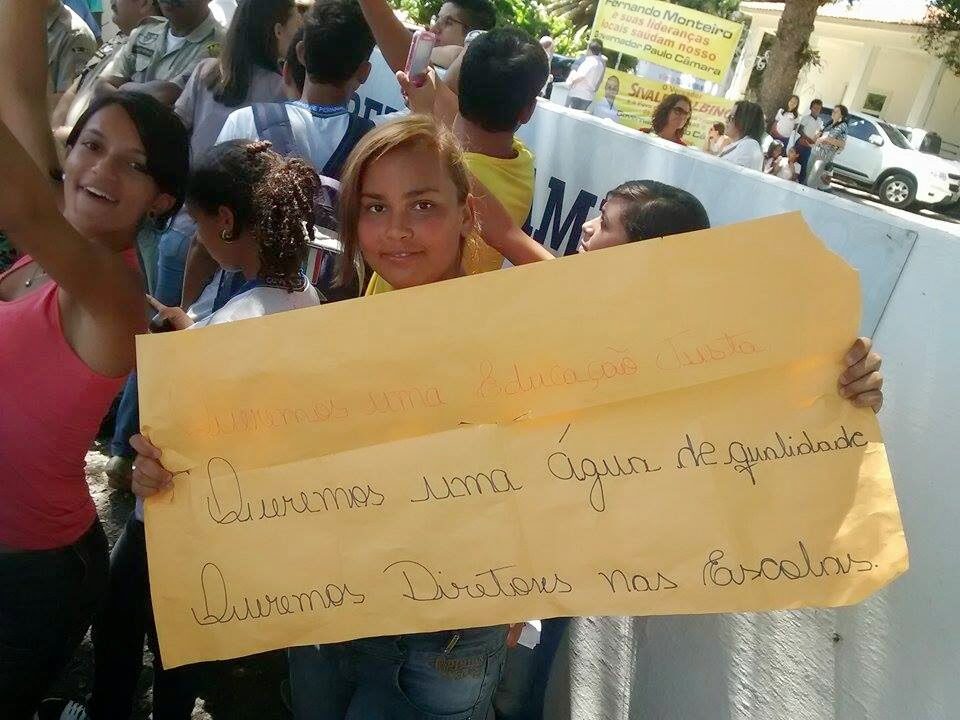 Fernando Monteiro
e suas lideranças
locais saudam nosso
Governador Paulo Câmara
SIVAL ALBINO
Paulo Câmara
AM
Queremos uma Educação Justa.
Queremos uma água de qualidade
Queremos Diretores nas Escolas.